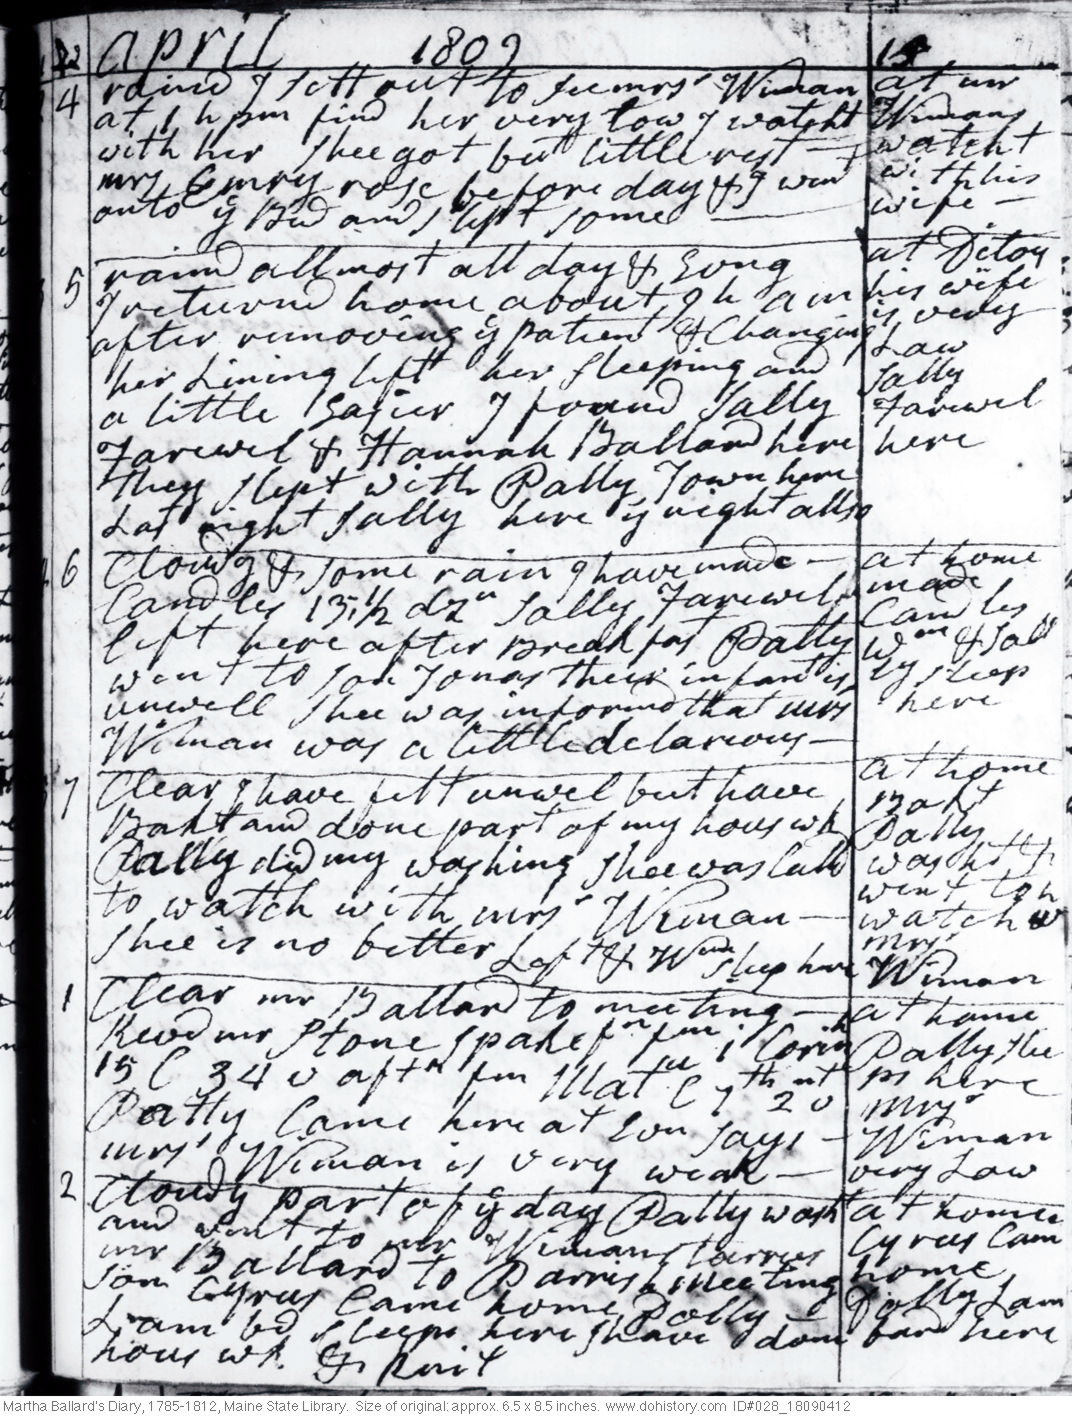 12 April 1809 15
4 rained I sett out to see mrs Wiman
at 1 h pm find her very low I watcht
with her Shee got but little rest
mrs Emry rose before day & I went
onto ye Bed and slept some
at mr
Wimans
watcht
with his
wife
5 raind allmost all day & Evng
I returnd home about 9 h Am
after removing ye patient & Changing
her Lining left her Sleeping and
a little Easier I found Sally
Farewel & Hannah Ballard here
they slept with Patty Town here
Last night Sally here ys night allso
at Ditoes
his wife
is very
Law
Sally
Farewel
here
6 Cloudy & some rain I have made
Candles 13 1/2 dzn Sally Farewel
left here after Breakfast Patty
went to son Jonas their infant is
unwell Shee was informd that mrs
Wiman was a little delarious
at home
made
Candles
Wm & Sal
ly sleep
here
7 Clear I have felt unwel but have
Bakt and done part of my hous wk
Patty did my washing Shee was Calld
to watch with mrs Wiman
Shee is no better Left & Wm sleep here
at home
Bakt
Patty
washt &
went to
watch w
mrs
Wiman
1 Clear mr Ballard to meeting
Revd mr Stone Spake fn fm 1 Corin
15 C 34 v aftn fm Mat C 7th 20 v
Patty Came here at Evn says
mrs Wiman is very weak
at home
Patty Shee
is here
Mrs
Wiman
very Law
2 Cloudy part of ye day Patty washt
and went to mr Wimans tarries
mr Ballard to Parrish meeting
son Cyrus Came home Polly
Lambd sleeps here I have done
hous wk & knit
at home
Cyrus Cam
home
Polly Lam
bard here
Martha Ballard's Diary, 1785-1812, Maine State Library. Size of original: approx. 6.5 x 8.5 inches. www.dohistory.com ID#028_18090412